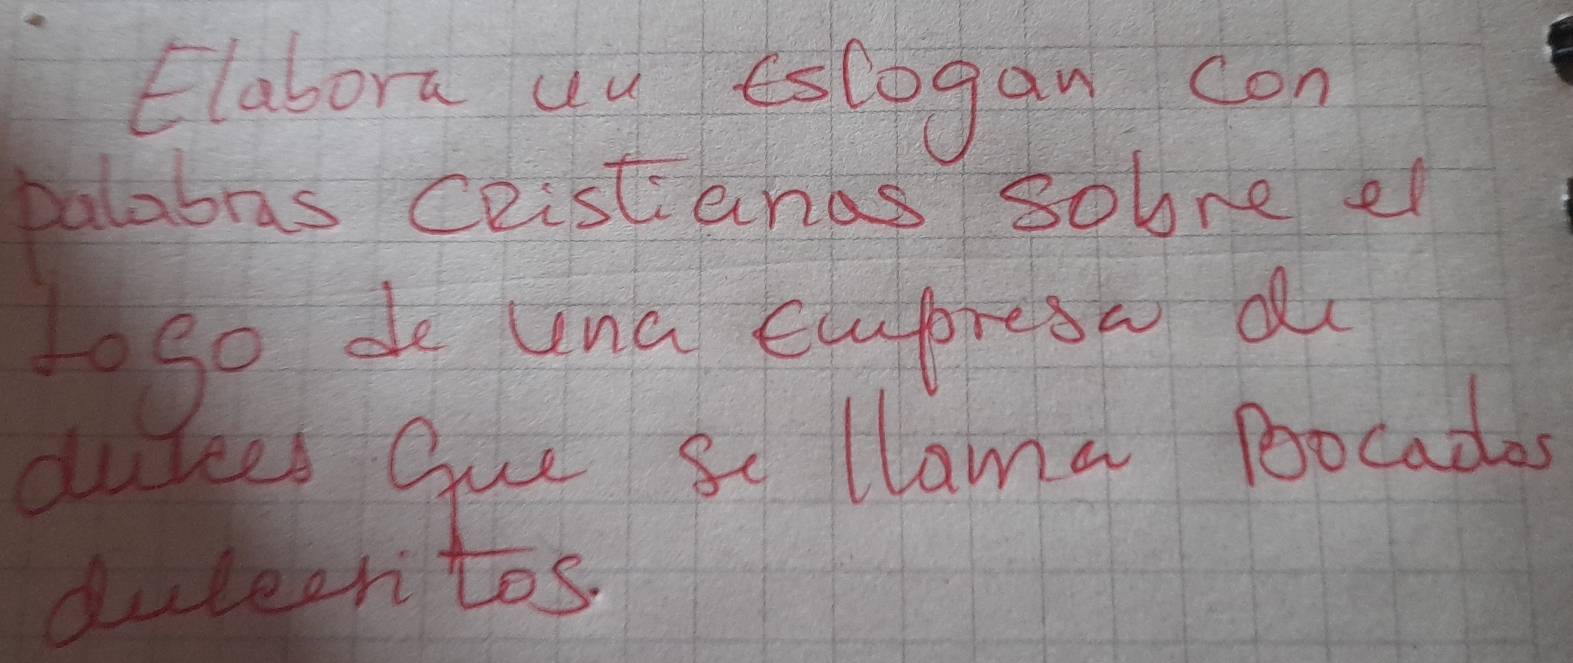 Elabora un Eslogan con
palabras cristianas sobre el
logo de una empresa de
dulces que se llama Bocados
dulceritos.